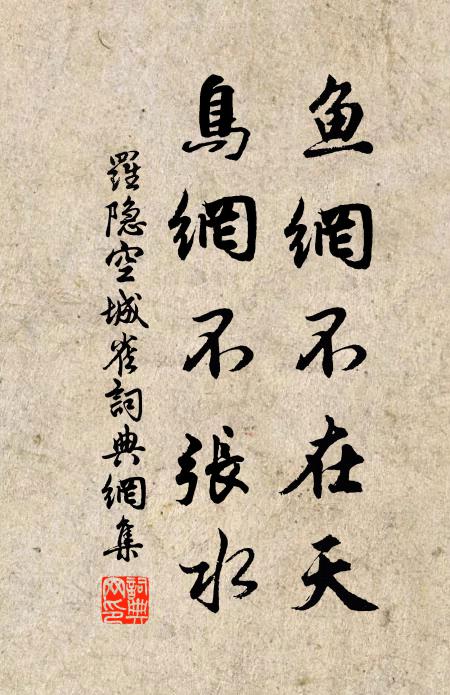 鱼網不在天
鳥網不張水
羅隐空城雀詞典網集
詞典网印